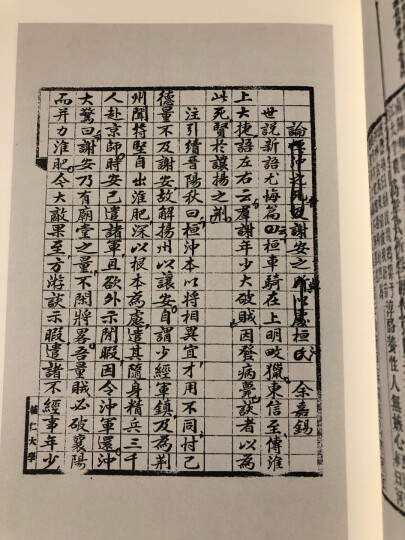 論桓沖之死及謝安之所以處桓氏 余嘉錫
世說新語尤悔篇曰桓車騎在上明畋獵東信至傳淮
上大捷語左右云群謝年少大破賊因發病薨談者以為
此死賢於讓揚之荊
注引續晉陽秋曰桓沖本以將相異宜才用不同忖己
德量不及謝安故解揚州以讓安自謂少經軍鎮及為荊
州聞苻堅自出淮肥深以根本為慮遣其隨身精兵三千
人赴京師時安已遣諸軍且欲外示閒暇因令沖軍還沖
大驚曰謝安乃有廟堂之量不閑將畧吾量賊必破襄陽
而并力淮肥今大敵果至方游談示暇遣諸不經事年少
輔仁大學